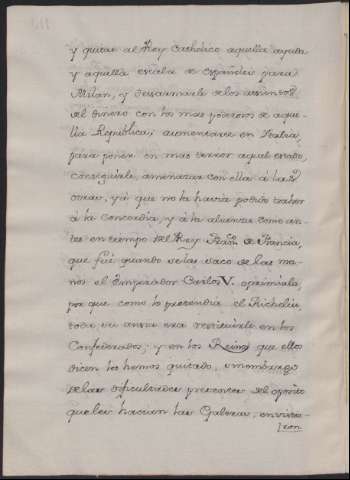 y quitar al Rey Catholico aquella ayuda
y aquella escala de españoles para
Milan, y desarmarle de los assientos
del dinero con los mas poderosos de aque-
lla Republica; aumentarse en Italia,
para poner en mas terror aquel estado,
conseguirle, amenazar con ella á las
otras, yá que no la havia podido traher
á la concordia, y á la alianza como an-
tes en tiempo del Rey Fran.co de Francia,
que fué quando se las saco de las ma-
nos el Emperador Carlos V. oprimiala,
por que como lo pretendia el Richelieu,
toda su ansia era restituirle en los
Confederados; y en los Reinos que ellos
dicen les hemos quitado, sin embargo
de las dificultades presentes del oposito
que les hacian las Galeras, envista-
ron